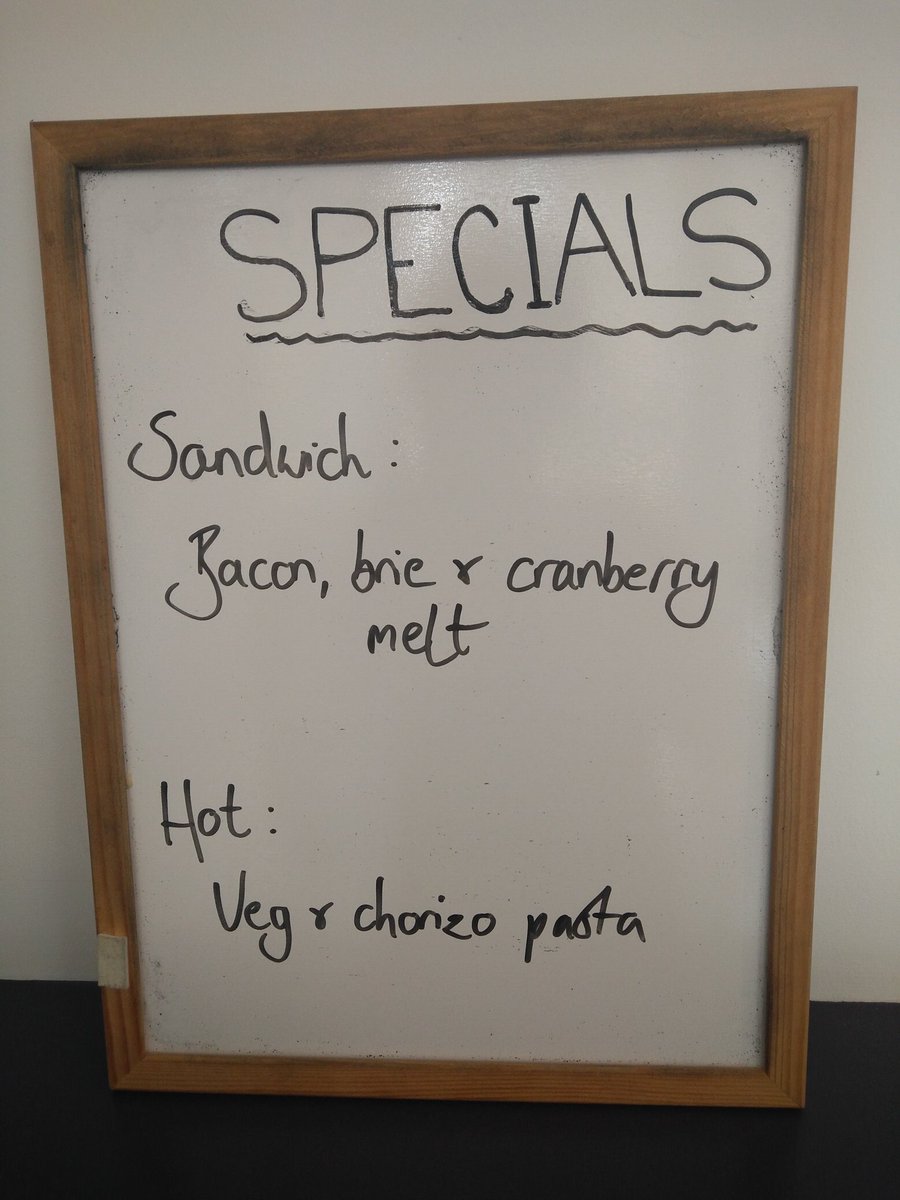 SPECIALS
Sandwich:
Bacon, brie & cranberry
melt
Hot:
Veg & chorizo pasta